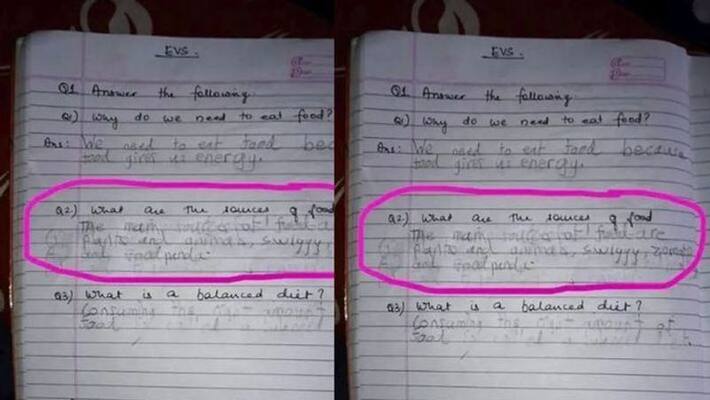 EVS.
Q1 Answer the following
Q1) Why do we need to eat food?
Ans: We need to eat food bec
food gives us energy.
Q2) What are the sources of food
The main sources of food are
plants and animals, swigyy,
and foodpanda
Q3) What is a balanced diet?
Consuming the right amount
food
EVS.
Q1 Answer the following
Q1) Why do we need to eat food?
Ans: We need to eat food because
food gives us energy.
Q2) What are the sources of food
The main sources of food are
plants and animals, swigyy,
and foodpanda
Q3) What is a balanced diet?
Consuming the right amount of
food